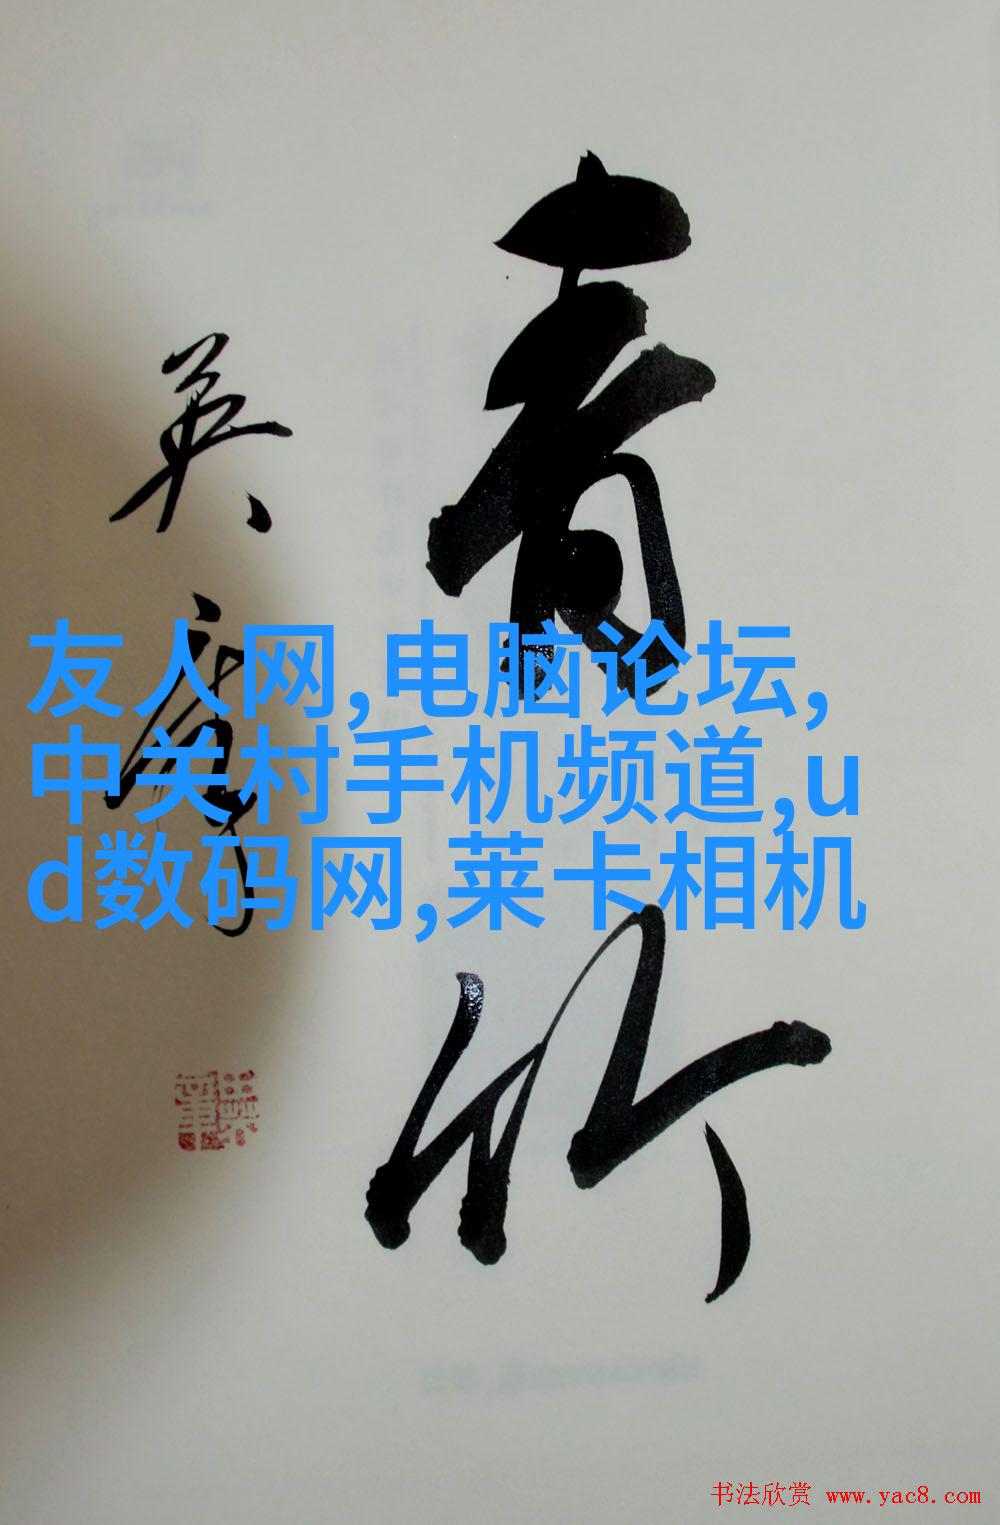 青竹
英章
友人网,电脑论坛,
中关村手机频道,u
d数码网,莱卡相机
书法欣赏 www.yac8.com